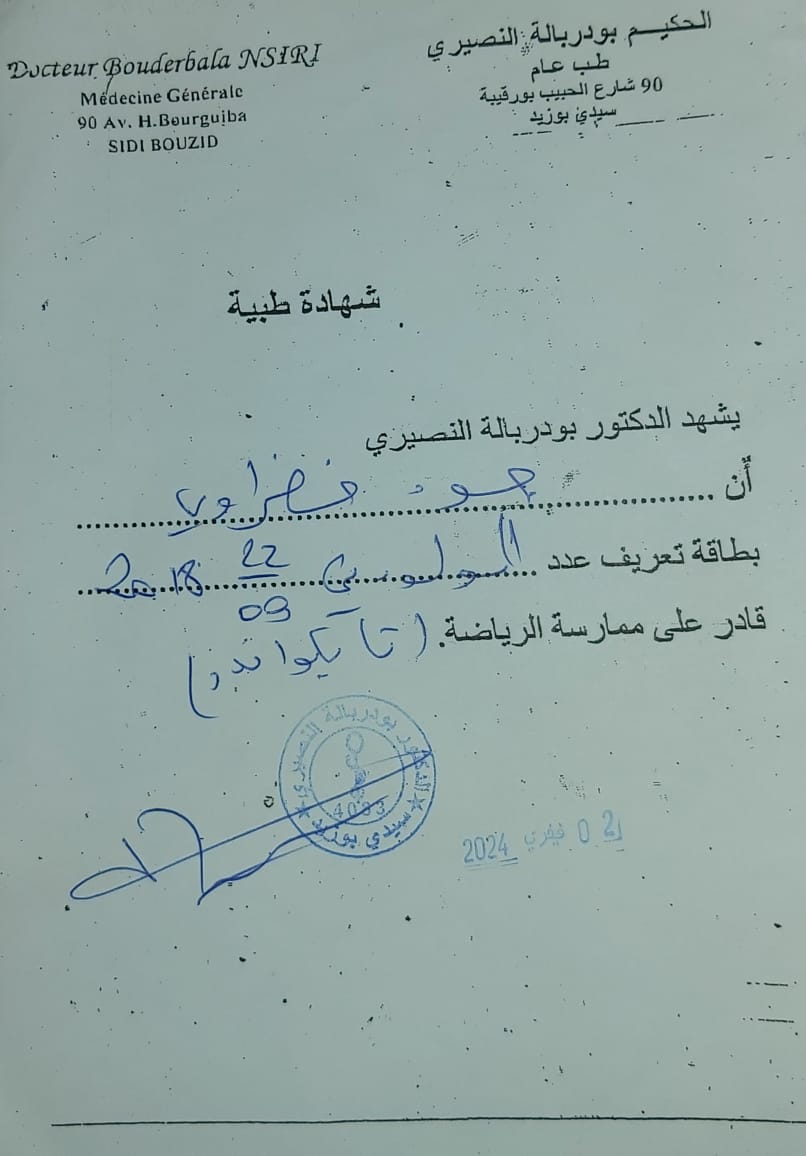 Docteur Bouderbala NSIRI
Médecine Générale
90 Av. H.Bourguiba
SIDI BOUZID
الحكيم بودربالة النصيري
طب عام
90 شارع الحبيب بورقيبة
سيدي بوزيد
شهادة طبية
يشهد الدكتور بودربالة النصيري
أن جود خضراوي
بطاقة تعريف عدد المولود في 22 09 2018
قادر على ممارسة الرياضة. (تايكواندو)
الدكتور بودربالة النصيري
4083
سيدي بوزيد
02 فيفري 2024